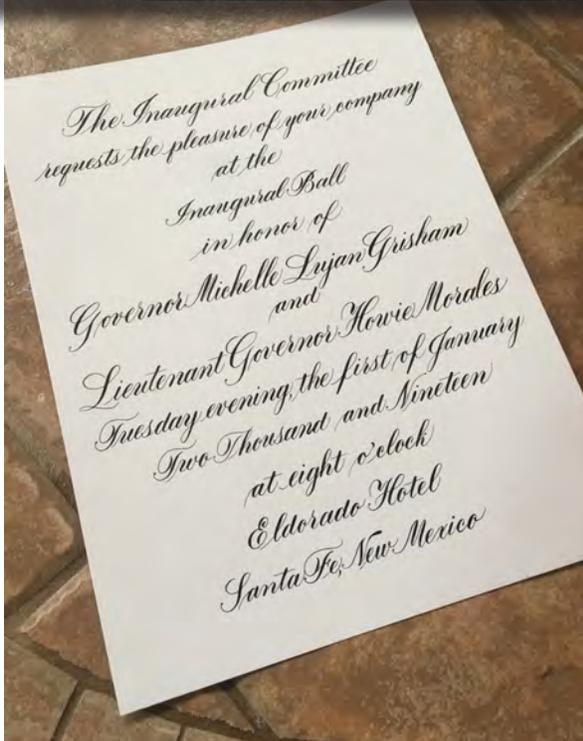 The Inaugural Committee
requests the pleasure of your company
at the
Inaugural Ball
in honor of
Governor Michelle Lujan Grisham
and
Lieutenant Governor Howie Morales
Tuesday evening, the first of January
Two Thousand and Nineteen
at eight o'clock
Eldorado Hotel
Santa Fe, New Mexico